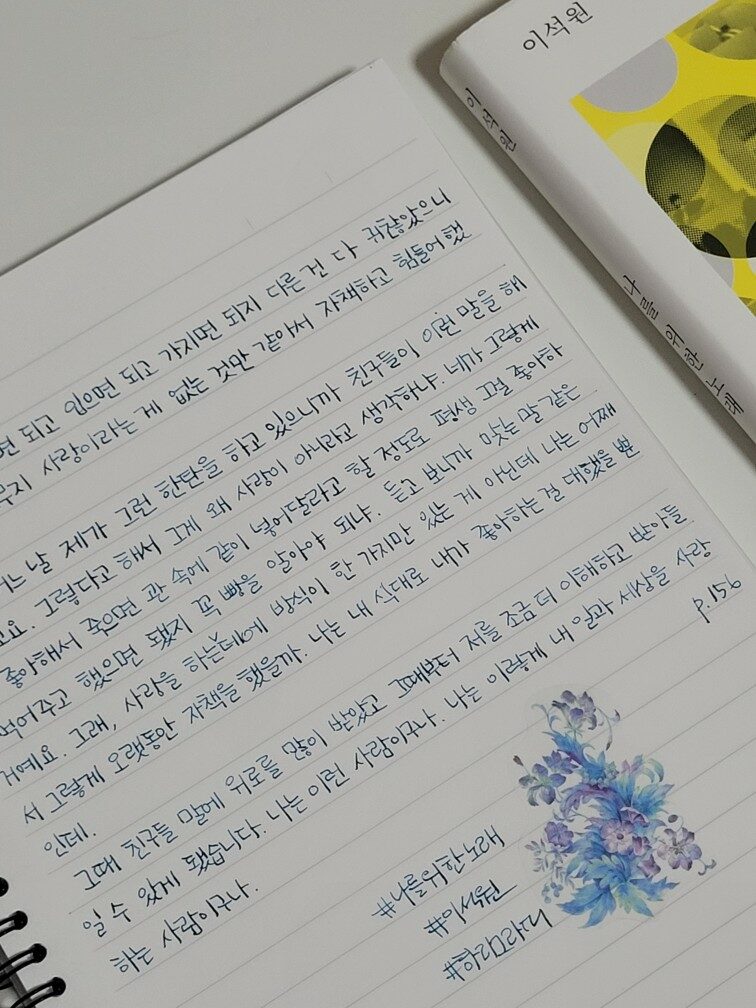 이석원
이석원
나를 위한 노래
면 되고 있으면 되고 가지면 되지 다른 건 다 귀찮았으니
무지 사랑이라는 게 없는 것만 같아서 자책하고 힘들어했
느 날 제가 그런 한탄을 하고 있으니까 친구들이 이런 말을 해
고요. 그렇다고 해서 그게 왜 사랑이 아니라고 생각하냐. 네가 그렇게
좋아해서 죽으면 관 속에 같이 넣어달라고 할 정도로 평생 그걸 좋아하
먹어주고 했으면 됐지 꼭 빵을 알아야 되냐. 듣고 보니까 맞는 말 같은
거예요. 그래, 사랑을 하는데에 방식이 한 가지만 있는 게 아닌데 나는 어째
서 그렇게 오랫동안 자책을 했을까. 나는 내 식대로 내가 좋아하는 걸 대했을 뿐
인데.
그때 친구들 말에 위로를 많이 받았고 그때부터 저를 조금 더 이해하고 받아들
일 수 있게 됐습니다. 나는 이런 사람이구나. 나는 이렇게 내 일과 세상을 사랑
하는 사람이구나.
p.156
#나를위한노래
#이석원